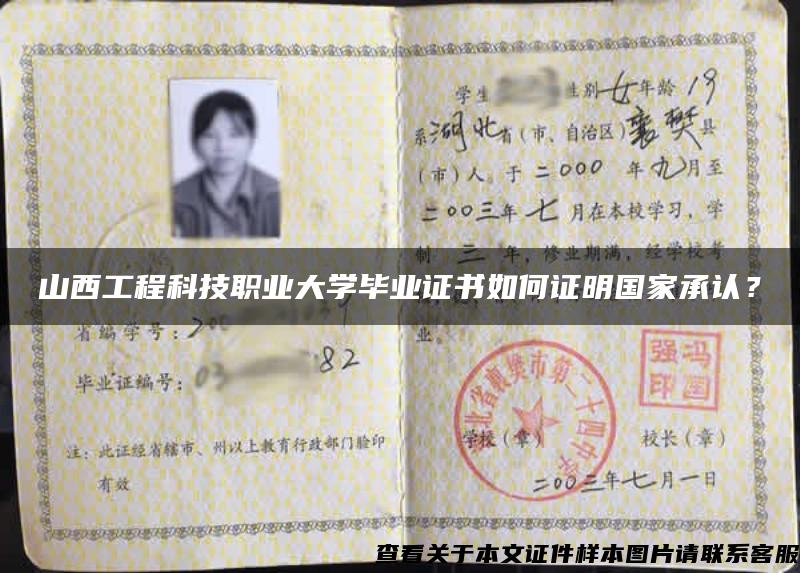 学生 性别女年龄19
系湖北省(市、自治区)襄樊县
(市)人。于二000年九月至
二00三年七月在本校学习,学
制三年,修业期满,经学校考
山西工程科技职业大学毕业证书如何证明国家承认?
业。
省编学号:
毕业证编号:03 82
注:此证经省辖市、州以上教育行政部门验印
有效
北省襄樊市第二十四中学
冯国强印
学校(章) 校长(章)
二00三年七月一日
查看关于本文证件样本图片请联系客服